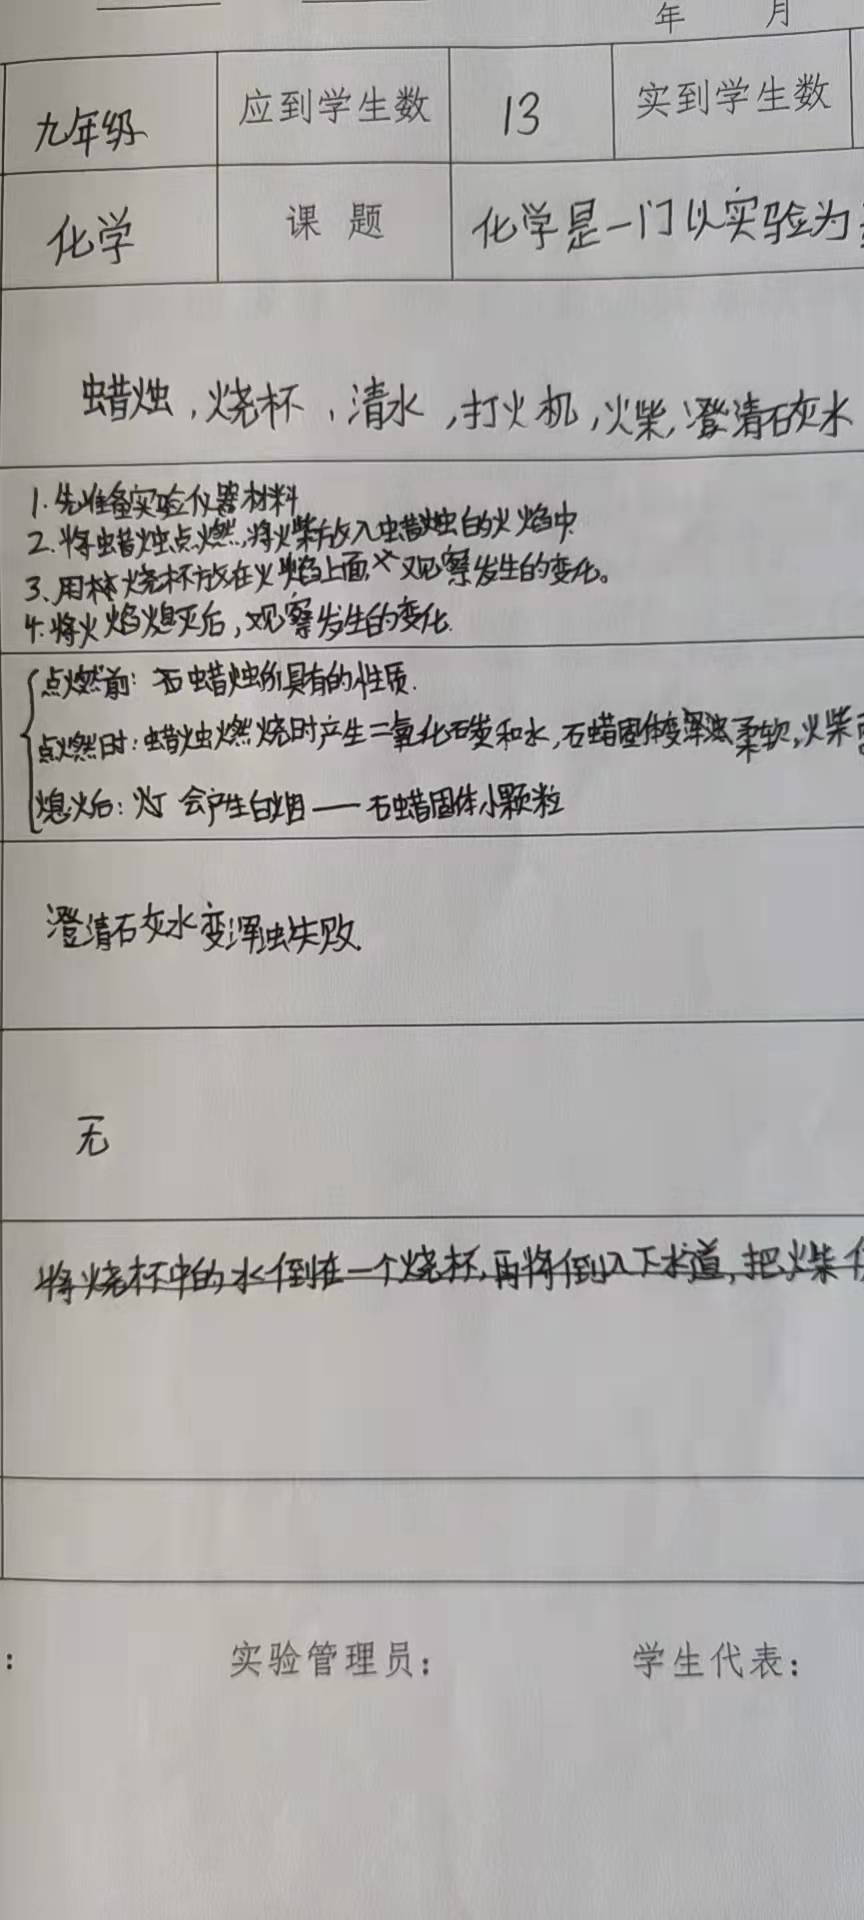 年 月
九年级 应到学生数 13 实到学生数
化学 课 题 化学是一门以实验为
蜡烛，烧杯，清水，打火机，火柴，澄清石灰水
1.先准备实验仪器材料
2.将蜡烛点燃，将火柴放入蜡烛的火焰中.
3.用烧杯放在火焰上面，观察发生的变化。
4.将火焰熄灭后，观察发生的变化.
点燃前：石蜡烛所具有的性质.
点燃时：蜡烛燃烧时产生二氧化碳和水，石蜡固体变柔软，火柴
熄火后：会产生白烟——石蜡固体小颗粒
澄清石灰水变浑浊失败.
无
将烧杯中的水倒在一个烧杯，再将倒入下水道，把火柴
： 实验管理员： 学生代表：